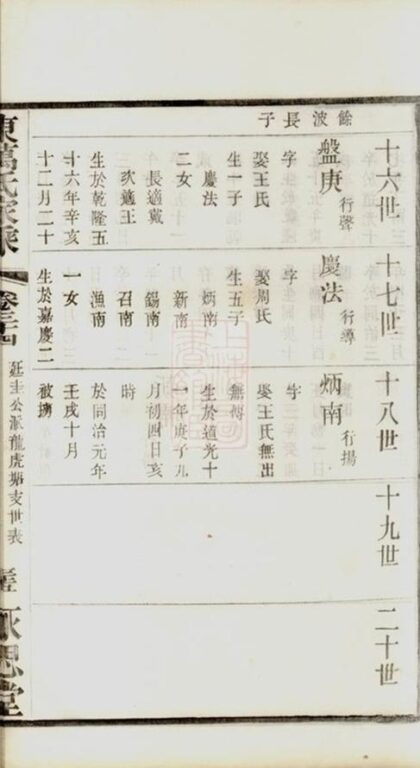 十六世
十七世
十八世
十九世
二十世
餘波長子
盤庚 行聲
字
娶王氏
生一子
慶法
二女
長適戴
次適王
生於乾隆五
十六年辛亥
十二月二十
慶法 行導
字
娶周氏
生五子
炳南
新南
錫南
召南
漁南
一女
生於嘉慶二
炳南 行揚
字
娶王氏無出
無傳
生於道光十
一年庚子九
月初四日亥
時
於同治元年
壬戌十月
被擄
東萬氏家乘
公派龍虎塘支世表
永思堂